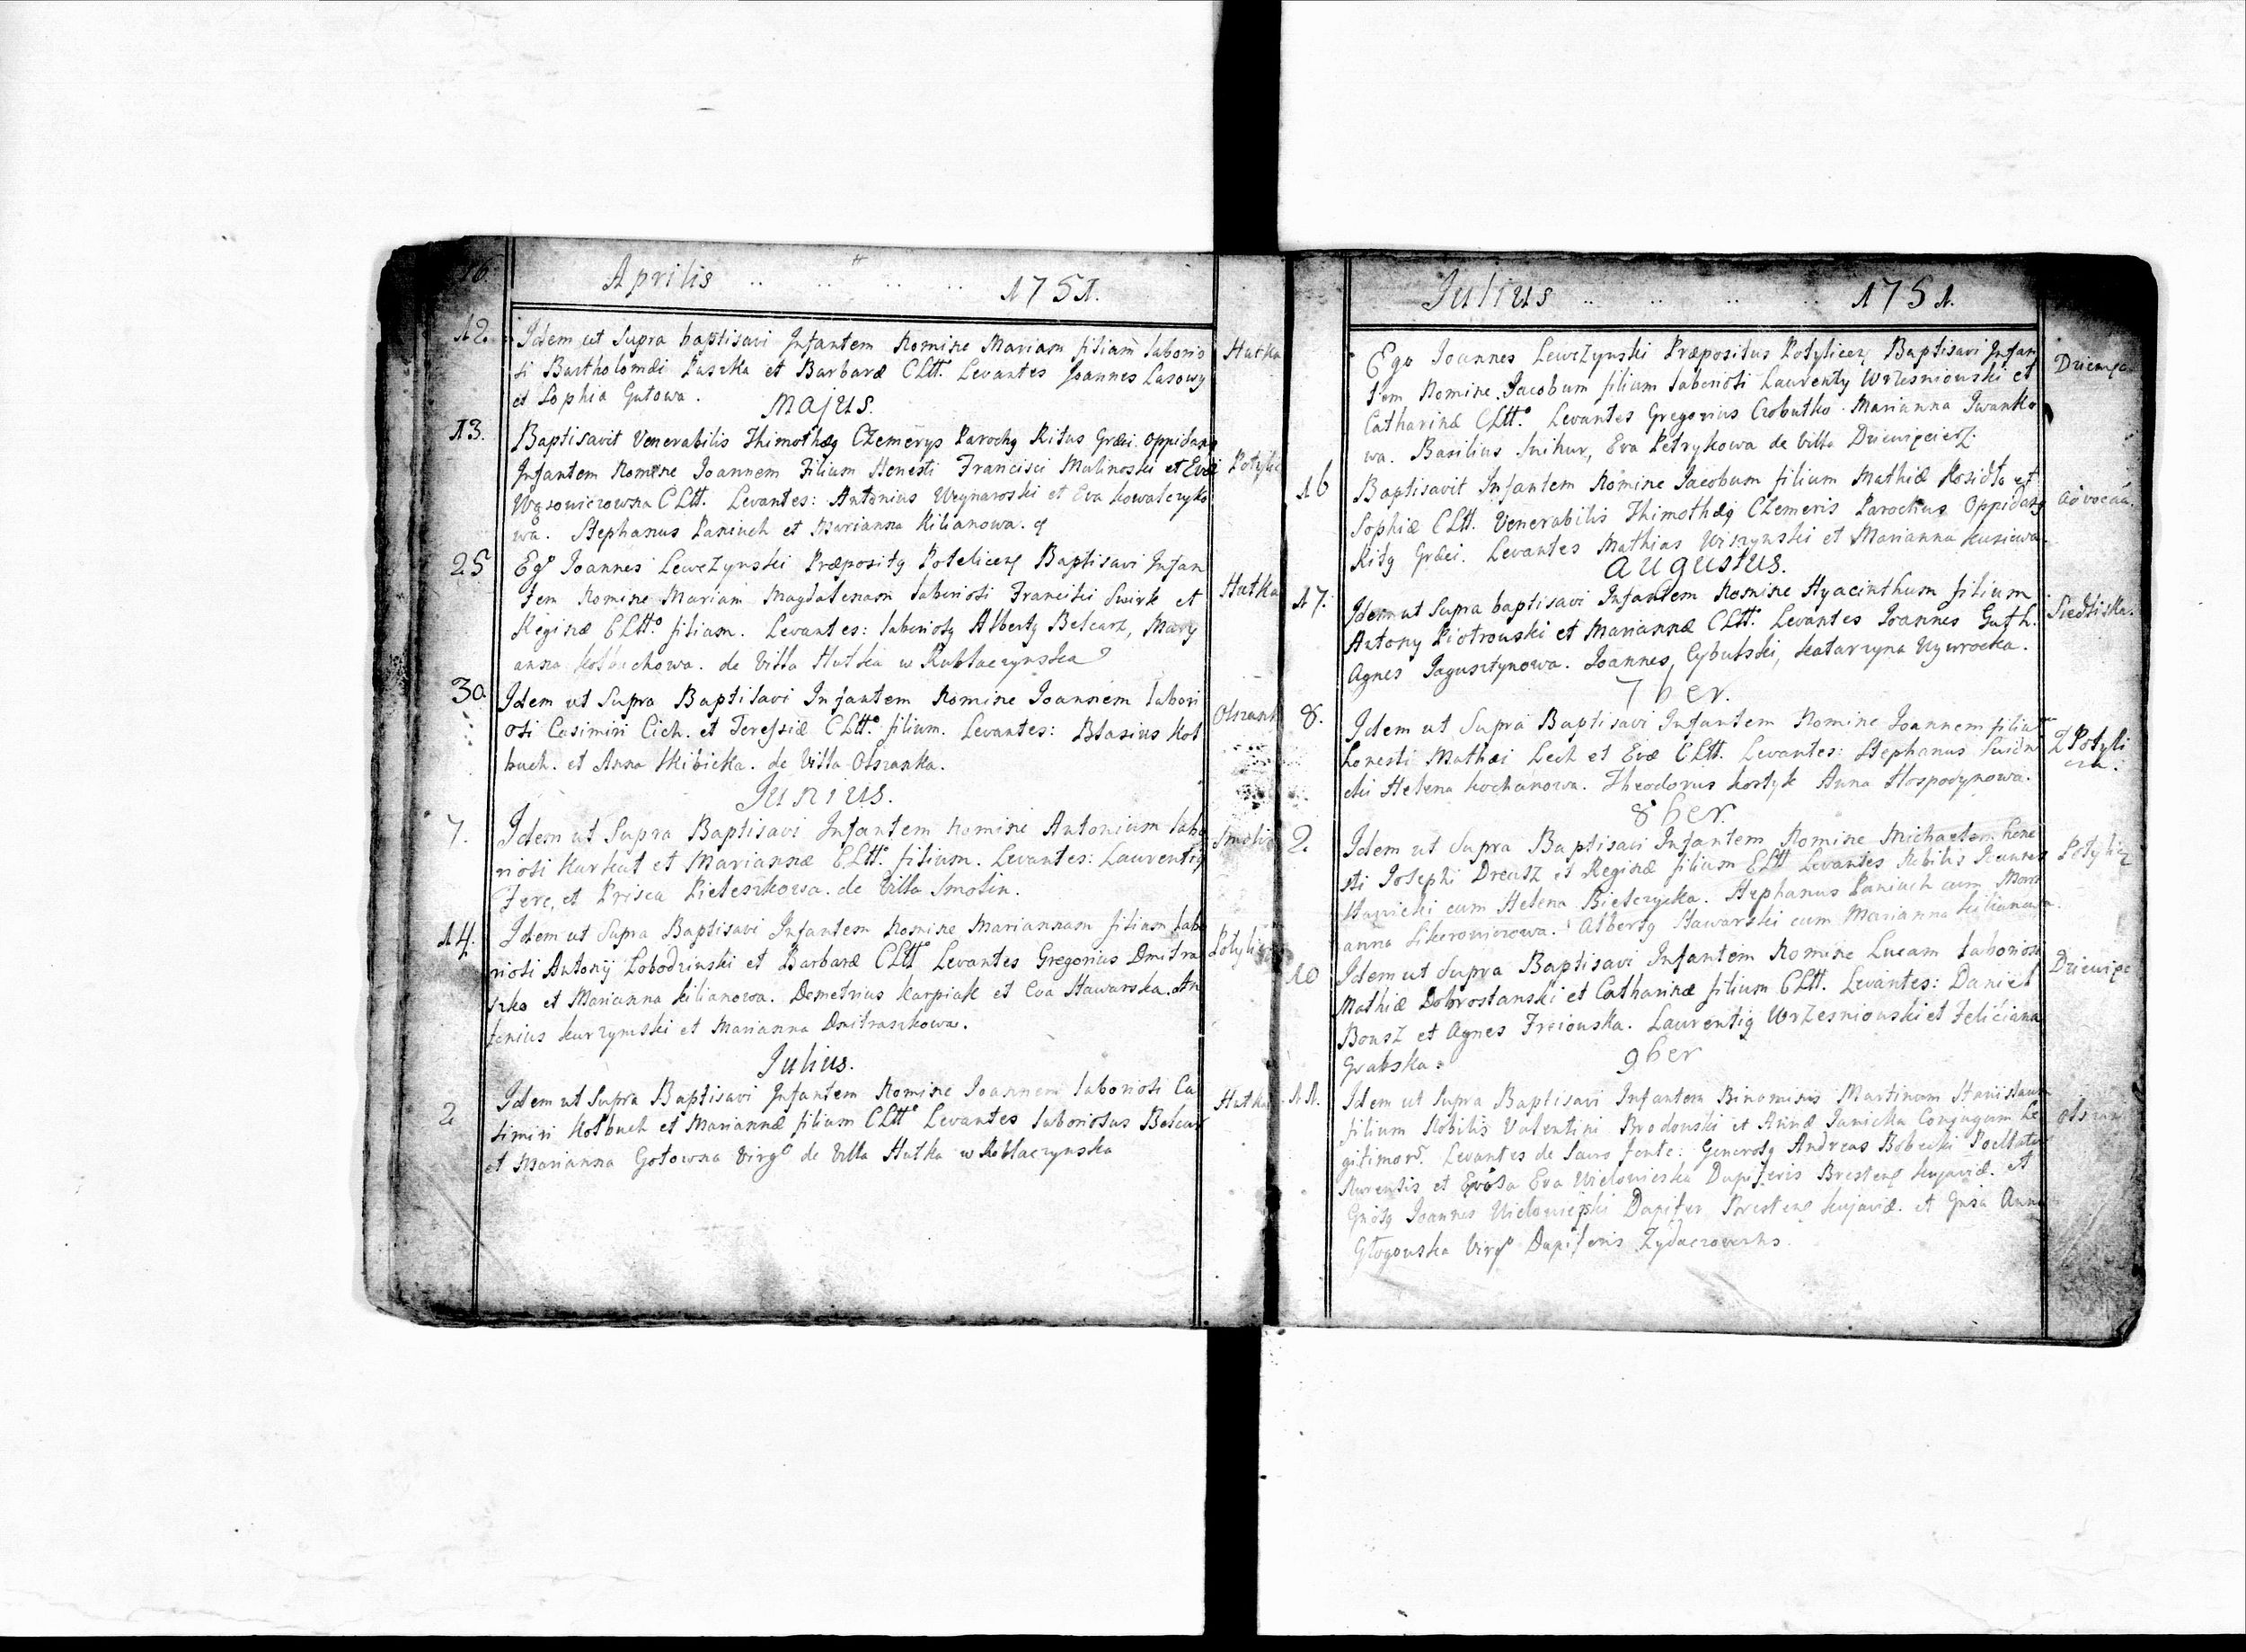 16.
Aprilis .. .. .. .. 1751.
12. Idem ut Supra baptisavi Infantem Nomine Mariam filiam laborio Hutka
si Bartholomæi Paszka et Barbaræ CLtt. Levantes Joannes Lasowy
et Sophia Gutowa.
Majus.
13. Baptisavit Venerabilis Thimothæg CZemerys Parochg Ritus Græci oppidang
Infantem Nomine Joannem Filium Honesti Francisci Malinoski et Evæ Potyli
Wąsowiczowna CLtt. Levantes: Antonius Wegnaroski et Eva Kowalczyko
wa. Stephanus Paniuch et Marianna Kilianowa.
25 Ego Joannes LewcZynski Præpositg Potelicens Baptisavi Infan
tem Nomine Mariam Magdalenam laboriosi Francisci Swirk et Hutka
Reginæ CLtt. filiam. Levantes: laboriosg Albertg Belcarz, Mary
anna Kotbuchowa. de Villa Hutka w Rubłaczynska
30. Idem ut Supra Baptisavi Infantem Nomine Joannem labori
osi Casimiri Cich. et Teressiæ CLtt. filium. Levantes: Blasius Kot Olszank
buch. et Anna Skibicka. de Villa Olszanka.
Junius.
7. Idem ut Supra Baptisavi Infantem Nomine Antonium labo Smolin
riosi Karkut et Mariannæ CLtt. filium. Levantes: Laurentig
Ferc, et Prisca Pieleszkowa. de Villa Smolin.
14. Idem ut Supra Baptisavi Infantem Nomine Mariannam filiam labo
riosi Antonij Lobodzinski et Barbaræ CLtt Levantes Gregorius Dmitra Potylicz
szko et Marianna Kilianowa. Demetrius Karpiak et Eva Hawarska. An
tonius Kurzymski et Marianna Dmitraszkowa.
Julius.
2 Idem ut Supra Baptisavi Infantem Nomine Joannem laboriosi Ca Hutka
simiri Kotbuch et Mariannæ filium CLtt Levantes laboriosus Belcar
et Marianna Gotowna Virgo de Villa Hutka w Robłaczynska
Julius .. .. .. .. 1751.
Ego Joannes LewcZynski Præpositus Potylicens Baptisavi Infan Dziewięc
tem Nomine Jacobum filium laboriosi Laurenty WrZesniowski et
Catharinæ CLtt. Levantes Gregorius Czobutko. Marianna Iwanko
wa. Basilius Snihur, Eva Petrykowa de Villa Dziewięcierz.
16 Baptisavit Infantem Nomine Jacobum filium Mathiæ Kosidło et
Sophiæ CLtt. Venerabilis Thimothæg CZemeris Parochus Oppidang advocaa.
Ritg Græci. Levantes Mathias Wiszynski et Marianna Kusiowa.
Augustus.
17. Idem ut Supra baptisavi Infantem Nomine Hyacinthum filium Siedliska.
Antony Piotrowski et Mariannæ CLtt. Levantes Joannes Guth.
Agnes Jagusztynowa. Joannes Cybulski, Katarzyna Uywrocka.
7ber.
8. Idem ut Supra Baptisavi Infantem Nomine Joannem filium
honesti Mathæi Lech et Evæ CLtt. Levantes: Stephanus Z Potyli
cki Helena Kochanowa. Theodorus Kostyk Anna Hospodynowa. cza.
8ber.
2. Idem ut Supra Baptisavi Infantem Nomine Michaelem hone Potylicz
sti Josephi Dreusz et Reginæ filium CLtt Levantes Nobilis Joannes
Hawicki cum Helena Bielczycka. Stephanus Paniuch cum Mari
anna Sikorowiczowa. Albertg Hawarski cum Marianna Kilianowa.
10 Idem ut Supra Baptisavi Infantem Nomine Lucam laboriosi Dziewięc
Mathiæ Dobrostanski et Catharinæ filium CLtt. Levantes: Daniel
Bousz et Agnes Freiowska. Laurentig WrZesniowski et Feliciana
Grabska.
9ber
11. Idem ut Supra Baptisavi Infantem Binominis Martinum Stanislaum
filium Nobilis Valentini Brodowski et Annæ Janicka Conjugum Le Olszan
gitimorum. Levantes de Sacro fonte: Generosg Andreas Bobecki
et Eva Wielowieska Dapiferis Brestens Kujaviæ. et
Gnosg Joannes Wielowieyski Dapifer Brestens Kujaviæ. et Gnsa Anna
Głogowska Virgo Dapiferis